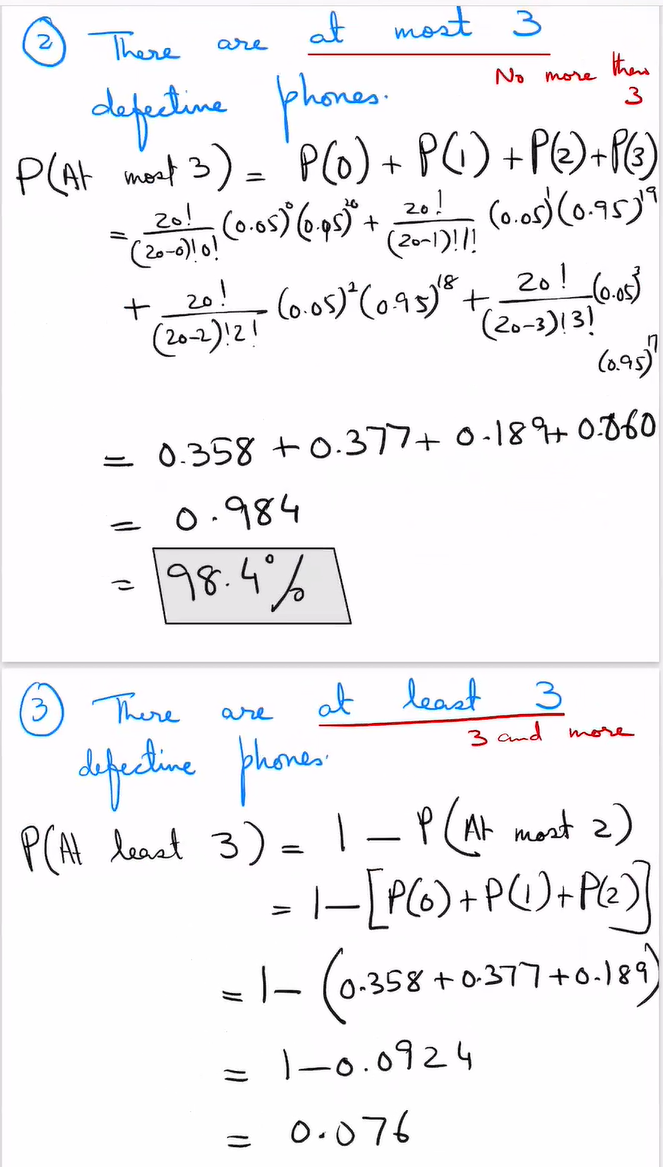 ② There are at most 3
No more then 3
defective phones.
P(At most 3) = P(0) + P(1) + P(2) + P(3)
= 20!/(20-0)!0! (0.05)⁰ (0.95)²⁰ + 20!/(20-1)!1! (0.05)¹ (0.95)¹⁹
+ 20!/(20-2)!2! (0.05)² (0.95)¹⁸ + 20!/(20-3)!3! (0.05)³
(0.95)¹⁷
= 0.358 + 0.377 + 0.189 + 0.060
= 0.984
= 98.4%
③ There are at least 3
3 and more
defective phones.
P(At least 3) = 1 – P(At most 2)
= 1 – [P(0) + P(1) + P(2)]
= 1 – (0.358 + 0.377 + 0.189)
= 1 – 0.0924
= 0.076